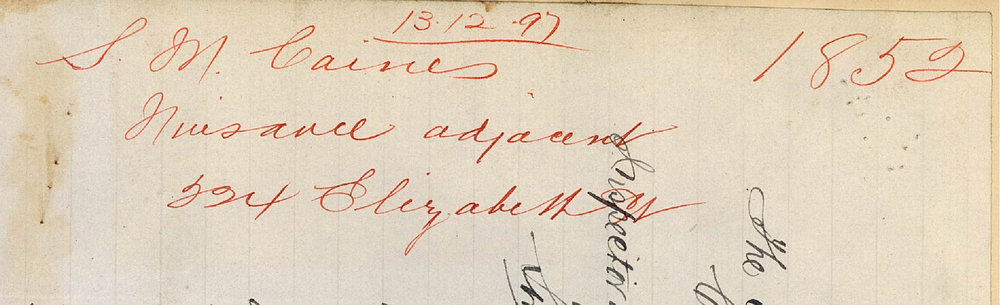 13.12.97
S. M. Caines 1852
Nuisance adjacent
524 Elizabeth St
Inspector
The